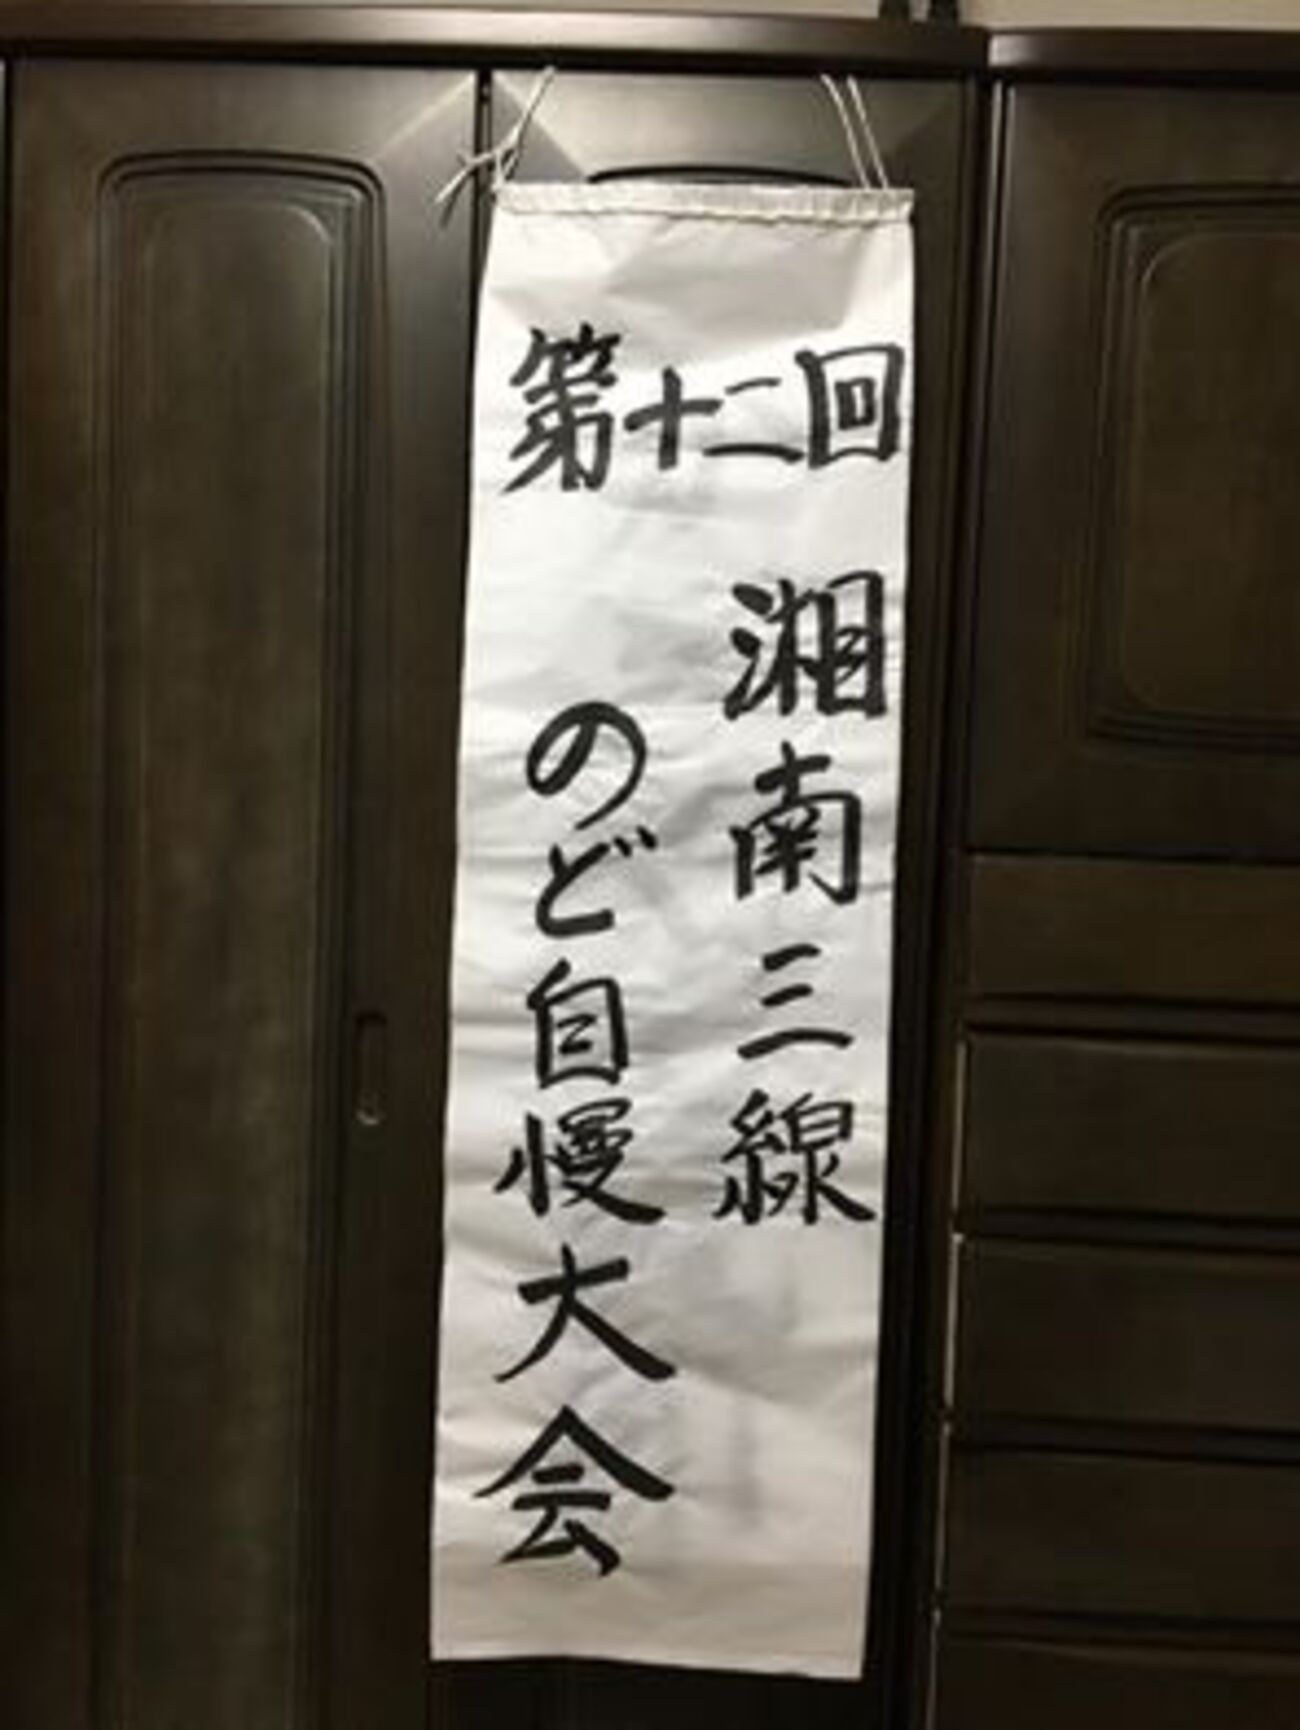 第十二回
湘南三線
のど自慢大会